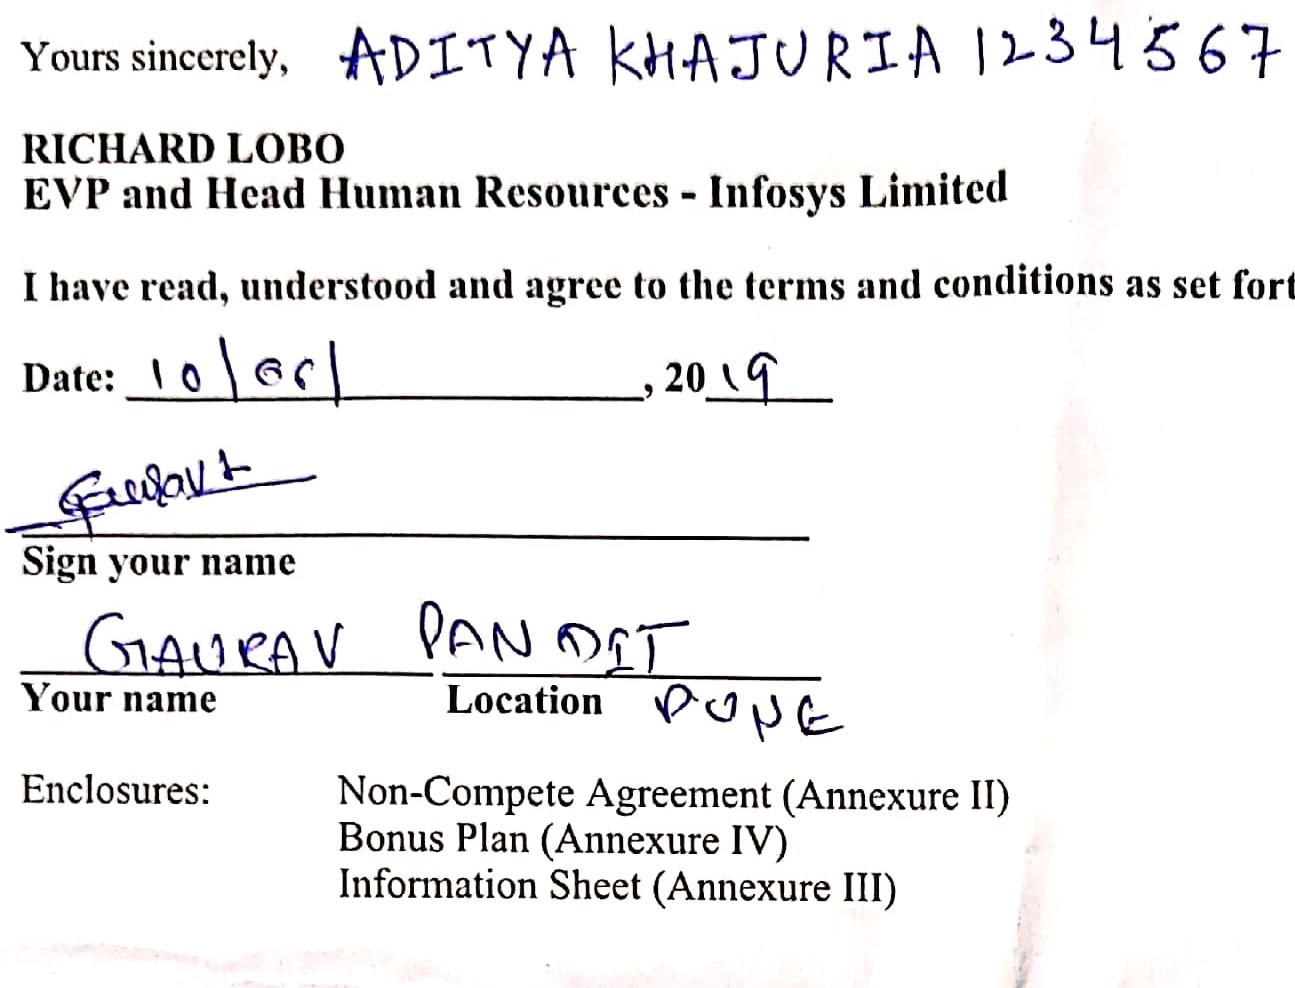 Yours sincerely, ADITYA KHAJURIA 1234567
RICHARD LOBO
EVP and Head Human Resources - Infosys Limited
I have read, understood and agree to the terms and conditions as set fort
Date: 10/ , 2019
Sign your name
GAURAV PANDIT
Your name Location PUNE
Enclosures: Non-Compete Agreement (Annexure II)
Bonus Plan (Annexure IV)
Information Sheet (Annexure III)